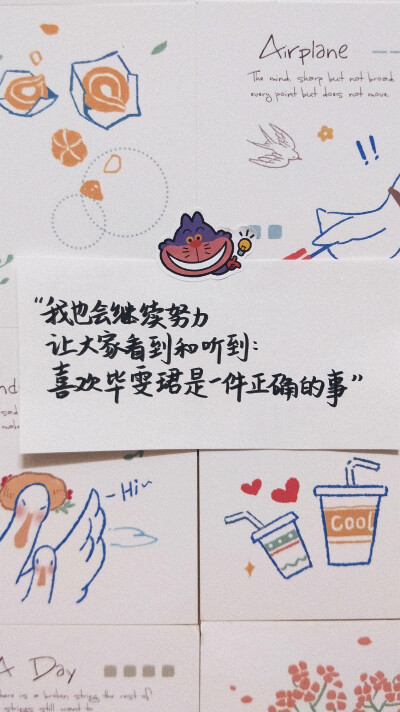 Airplane
The mind, sharp but not broad
every point but does not move.
!!
“我也会继续努力
让大家看到和听到：
喜欢毕雯珺是一件正确的事”
-Hi~
COOL
A Day
there is a broken string the rest of
strings still want to